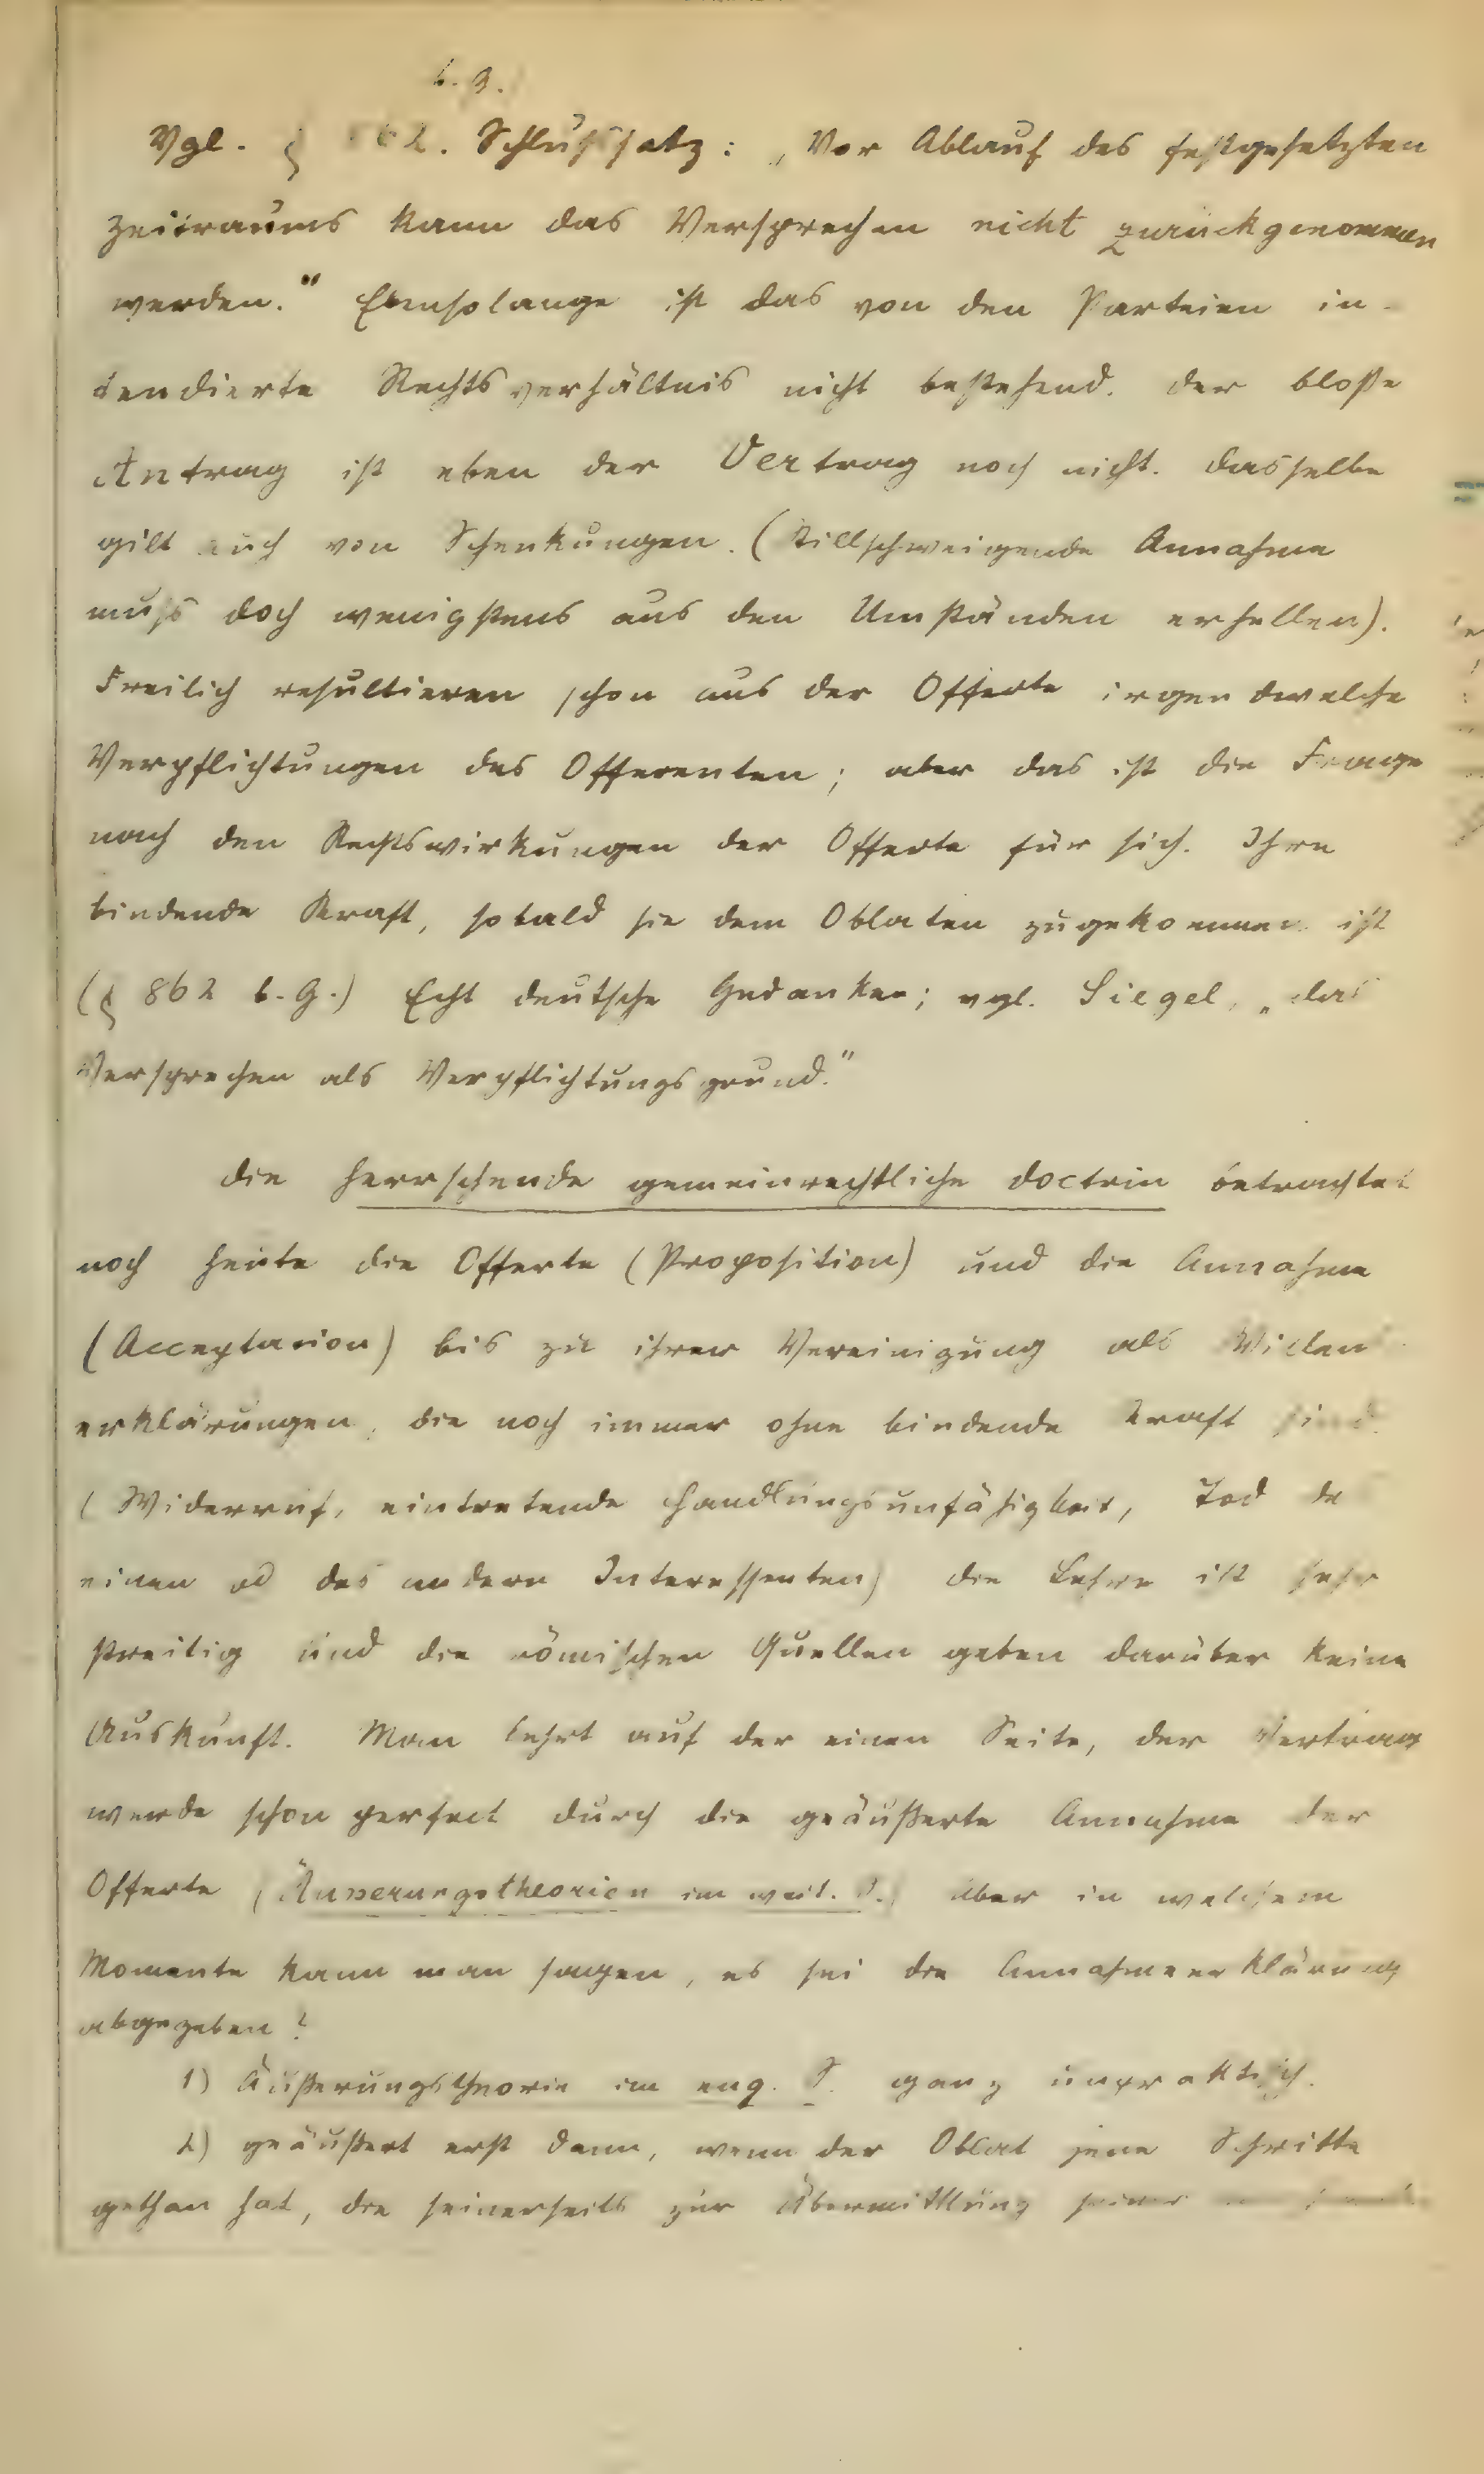 b. G.
Vgl. § 862. Schlußsatz: „Vor Ablauf des festgesetzten
Zeitraums kann das Versprechen nicht zurückgenommen
werden.“ Ebensolange ist das von den Parteien in-
tendierte Rechtsverhältnis nicht bestehend. Der bloße
Antrag ist eben der Vertrag noch nicht. Dasselbe
gilt auch von Schenkungen. (Stillschweigende Annahme
muß doch wenigstens aus den Umständen erhellen).
Freilich resultieren schon aus der Offerte irgendwelche
Verpflichtungen des Offerenten; aber das ist die Frage
nach den Rechtswirkungen der Offerte für sich. Ihre
bindende Kraft, sobald sie dem Oblaten zugekommen ist
(§ 862 b. G.) Echt deutsche Gedanken; vgl. Siegel, „das
Versprechen als Verpflichtungsgrund.“
Die herrschende gemeinrechtliche Doctrin betrachtet
noch heute die Offerte (Proposition) und die Annahme
(Acceptation) bis zu ihrer Vereinigung als Willens
erklärungen, die noch immer ohne bindende Kraft sind.
(Widerruf, eintretende Handlungsunfähigkeit, Tod de
einen od des andern Interessenten) Die Lehre ist sehr
streitig und die römischen Quellen geben darüber keine
Auskunft. Man lehrt auf der einen Seite, der Vertrag
werde schon perfect durch die geäußerte Annahme der
Offerte (Äusserungstheorien im weit. S.) Aber in welchem
Momente kann man sagen, es sei die Annahmeerklärung
abgegeben?
1) Äußerungstheorie im eng. S. ganz unpraktisch.
2) geäußert erst dann, wenn der Oblat jene Schritte
gethan hat, die seinerseits zur Übermittlung seiner